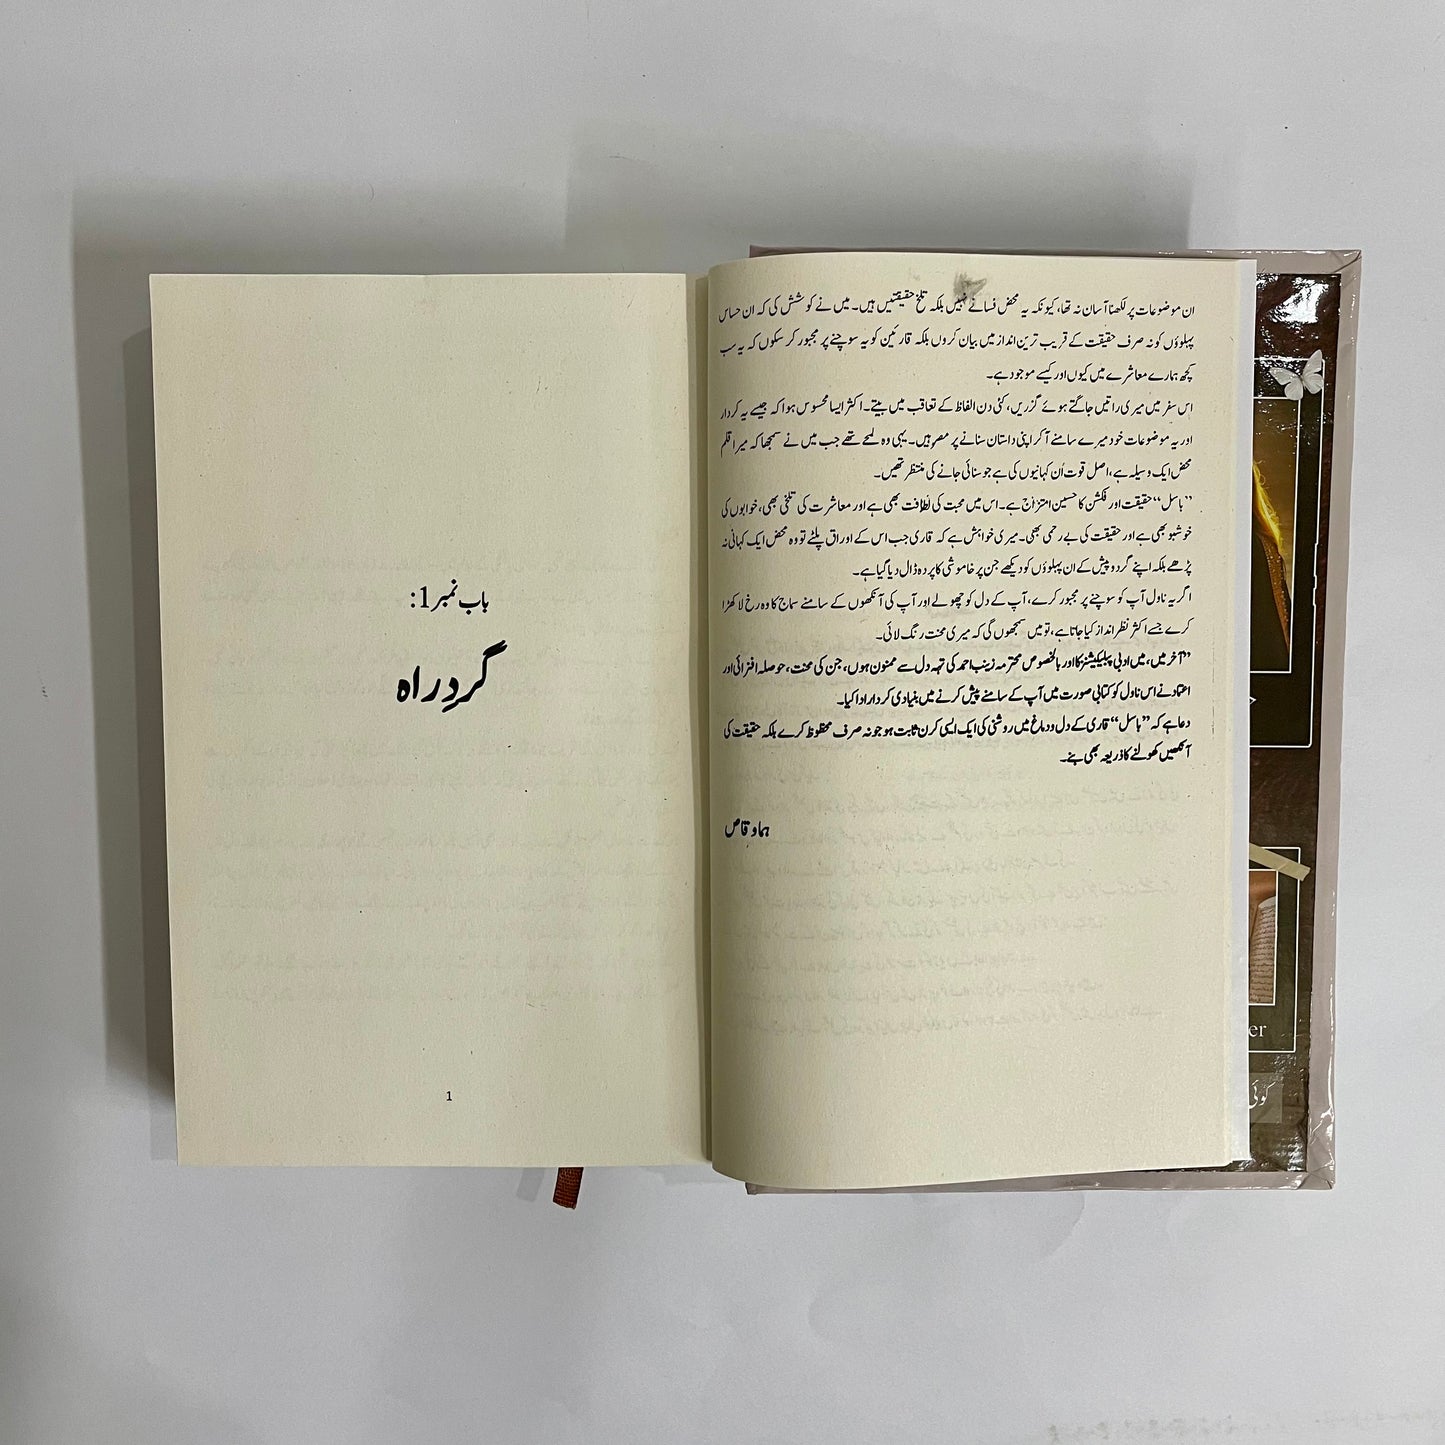 ان موضوعات پر لکھنا آسان نہ تھا، کیونکہ یہ محض فسانے نہیں بلکہ تلخ حقیقتیں ہیں۔ میں نے کوشش کی کہ ان حساس
پہلوؤں کو نہ صرف حقیقت کے قریب ترین انداز میں بیان کروں بلکہ قارئین کو یہ سوچنے پر مجبور کر سکوں کہ یہ سب
کچھ ہمارے معاشرے میں کیوں اور کیسے موجود ہے۔
اس سفر میں میری راتیں جاگتے ہوئے گزریں، کئی دن الفاظ کے تعاقب میں بیتے۔ اکثر ایسا محسوس ہوا کہ جیسے یہ کردار
اور یہ موضوعات خود میرے سامنے آ کر اپنی داستان سنانے پر مصر ہیں۔ یہی وہ لمحے تھے جب میں نے سمجھا کہ میرا قلم
محض ایک وسیلہ ہے، اصل قوت اُن کہانیوں کی ہے جو سنائی جانے کی منتظر تھیں۔
”باسل“ حقیقت اور فکشن کا حسین امتزاج ہے۔ اس میں محبت کی لطافت بھی ہے اور معاشرت کی تلخی بھی، خوابوں کی
خوشبو بھی ہے اور حقیقت کی بے رحمی بھی۔ میری خواہش ہے کہ قاری جب اس کے اوراق پلٹے تو وہ محض ایک کہانی نہ
پڑھے بلکہ اپنے گرد و پیش کے ان پہلوؤں کو دیکھے جن پر خاموشی کا پردہ ڈال دیا گیا ہے۔
اگر یہ ناول آپ کو سوچنے پر مجبور کرے، آپ کے دل کو چھو لے اور آپ کی آنکھوں کے سامنے سماج کا وہ رخ لا کھڑا
کرے جسے اکثر نظر انداز کیا جاتا ہے، تو میں سمجھوں گی کہ میری محنت رنگ لائی۔
”آخر میں، میں ادبی پبلیکیشنز کا اور بالخصوص محترمہ زینب احمد کی تہہ دل سے ممنون ہوں، جن کی محنت، حوصلہ افزائی اور
اعتماد نے اس ناول کو کتابی صورت میں آپ کے سامنے پیش کرنے میں بنیادی کردار ادا کیا۔
دعا ہے کہ ”باسل“ قاری کے دل و دماغ میں روشنی کی ایک ایسی کرن ثابت ہو جو نہ صرف محظوظ کرے بلکہ حقیقت کی
آنکھیں کھولنے کا ذریعہ بھی بنے۔
ہما وقاص
باب نمبر 1:
گردِ راہ
1
کوئی